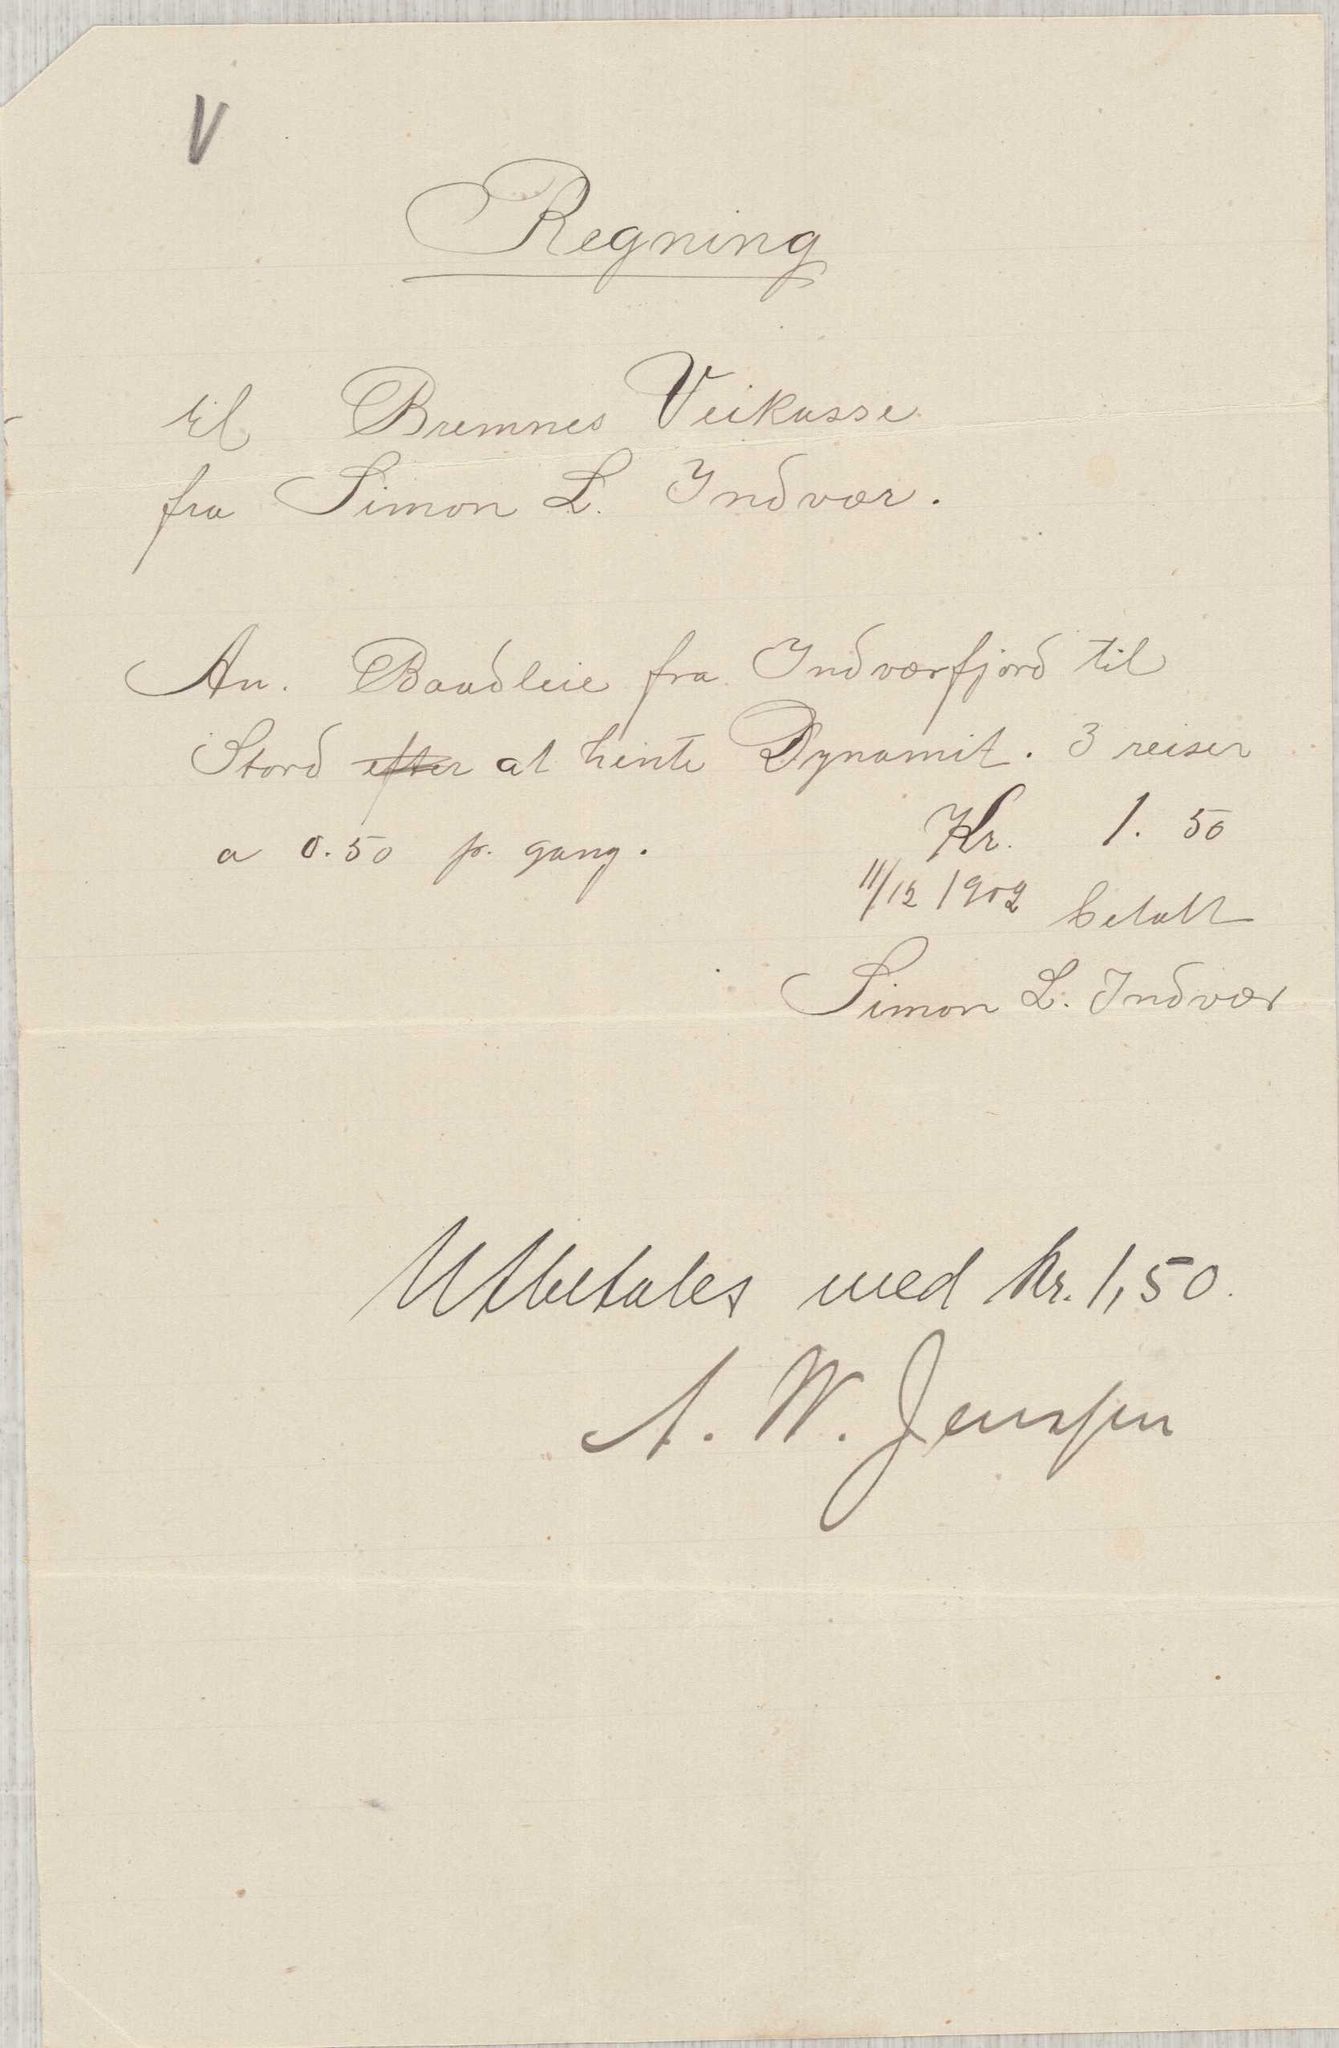 V
Regning
til Bremnes Veikasse
fra Simon L. Indvær.
An. Baadleie fra Indværfjord til
Stord efter at hente Dynamit. 3 reiser
a 0.50 pr. gang. Kr. 1.50
11/12 1902 betalt
Simon L. Indvær
Utbetales med kr. 1,50.
A. W. Jensen